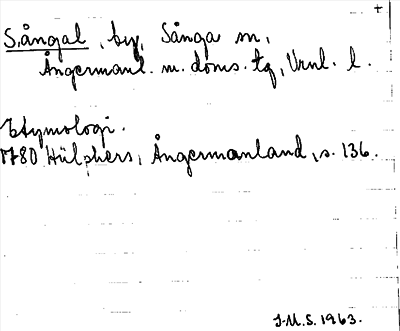 +
Sångal, by, Sånga sn,
Ångermanl. m. doms. tg, Vrnl. l.
Etymologi.
1780 Hülphers, Ångermanland, s. 136.
J.M.S. 1963.